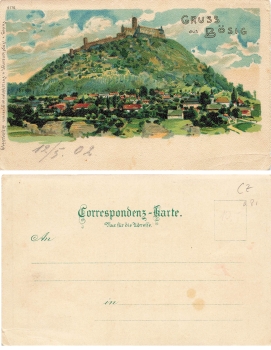 Gruss
aus Bösig
12/5 02
Correspondenz-Karte.
Nur für die Adresse.
An
in